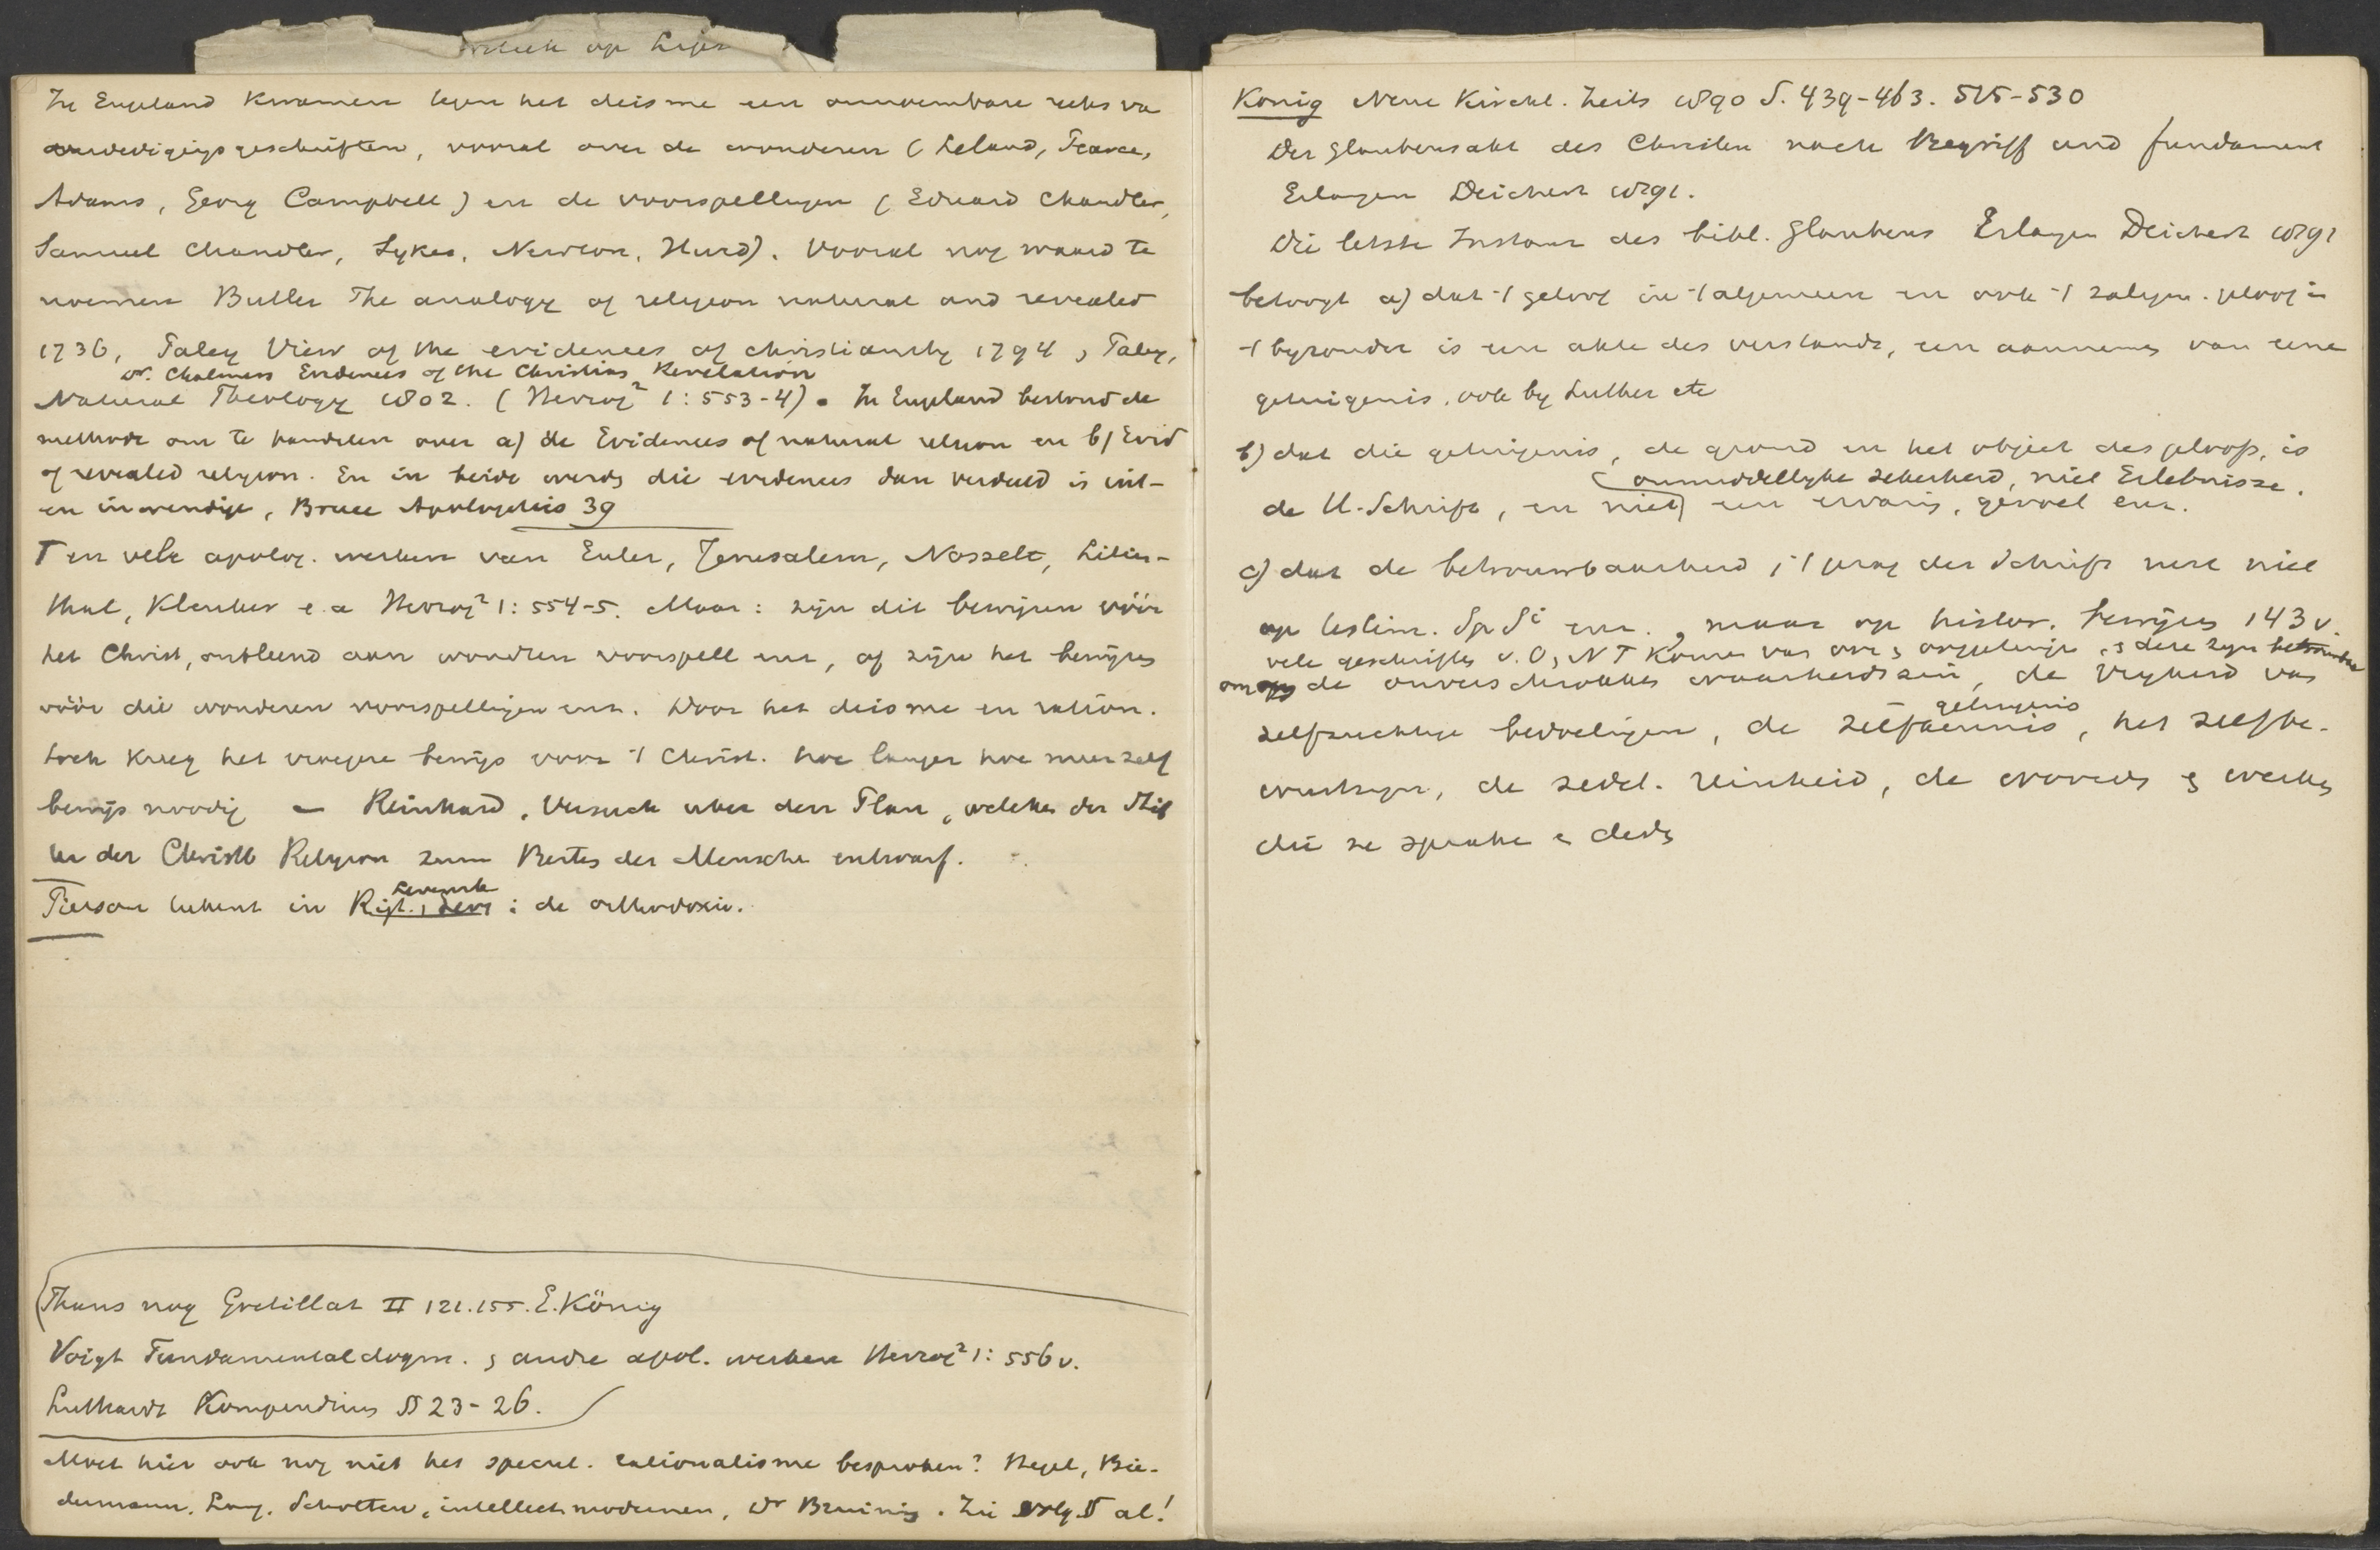 op
In Engeland kwamen tegen het deisme een onnoembare reeks va
verdedigingsgeschriften, vooral over de wonderen (Leland, Pearce,
Adams, Georg Campbell) en de voorspellingen (Eduard Chandler,
Samuel Chandler, Sykes, Newton, Hurd). Vooral nog waard te
noemen Butler The analogy of religion natural and revealed
1736, Paley View of the evidences of christianity 1794, Paley,
Dr. Chalmers Evidences of the Christian Revelation
Natural Theology 1802. (Herzog² 1: 553-4). In Engeland bestond de
methode om te handelen over a) de Evidences of natural relion en b) Evid
of revealed religion. En in beide werdn die evidences dan verdeeld in uit-
en inwendige, Bruce Apologetics 39
T en vele apolog. werken van Euler, Jerusalem, Nosselt, Lilien-
thal, Kleuker e.a Herzog² 1: 554-5. Maar: zijn dit bewijzen vóór
het Christ, ontleend aan wondren voorspell enz, of zijn het bewijzen
vóór die wonderen voorspellingen enz. Door het deisme en ration.
toch kreeg het vroegere bewijs voor 't Christ. hoe langer hoe meer zelf
bewijs noodig – Reinhard, Versuch uber den Plan, welchen der Stif
ter der Christl Religion zum Besten der Mensche entwarf.
Pierson tekent in Rigt. Levensb : de orthodoxie.
(Thans nog Gretillat II 121.155. E. König
Voigt Fundamentaldogm. & andre apol. werken Herzog² 1: 556 v.
Luthardt Kompendium §§ 23-26.
Moet hier ook nog niet het specul. rationalisme besproken? Hegel, Bie-
dermann. Lang. Scholten, intellect. modernen, Dr Bruining. Zie volg. § al!
König Neue Kirchl. Zeits 1890 S. 439-463. 515-530
Der Glaubensakt des Christen nach Begriff und fundament
Erlangen Deichert 1891.
Die letzte Instanz des bibl. Glaubens Erlangen Deichert 1892
betoogt a) dat 't geloof in 't algemeen en ook 't zaligm. geloof in
't byzonder is een akte des verstands, een aannemen van eene
getuigenis, ook by Luther etc
b) dat die getuigenis, de grond en het object des geloofs, is
onmiddellyke zekerheid, niet Erlebnisse.
de H. Schrift, en niet een ervaring, gevoel enz.
c) dat de betrouwbaarheid, 't gezag der Schrift rust niet
op testim. Sp Si enz., maar op histor. bewijzen 143 v.
vele geschriften v. O, N T komen van ooggetuigen, & deze zijn betrouwbaar
om de onverschrokken waarheidszin, de vryheid van
zelfzuchtige bedoelingen, de zelfkennis getuigenis, het zelfbe-
wustzyn, de zedel. reinheid, de woorden & werken
die ze spraken & deden